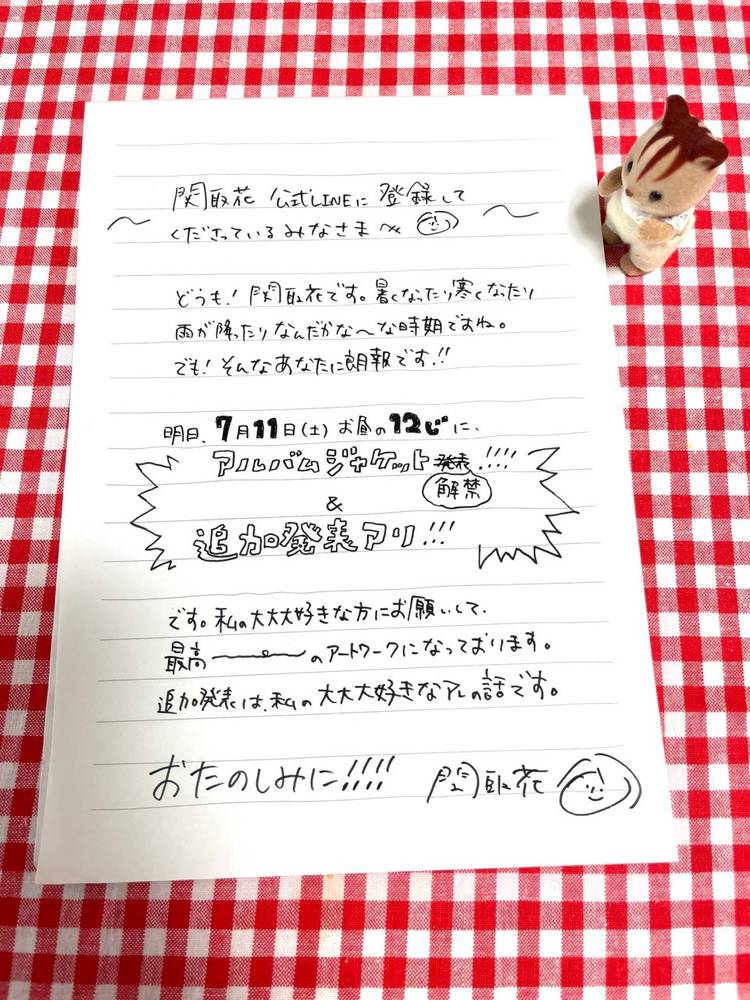 関取花 公式LINEに 登録して
くださっているみなさまへ
どうも！関取花です。暑くなったり寒くなったり
雨が降ったりなんだかな〜な時期ですね。
でも！そんなあなたに朗報です！！
明日、7月11日(土)お昼の12じに、
アルバムジャケット発表！！！！
解禁
&
追加発表アリ！！！
です。私の大大大好きな方にお願いして、
最高〜のアートワークになっております。
追加発表は、私の大大大好きなアレの話です。
おたのしみに！！！！ 関取花